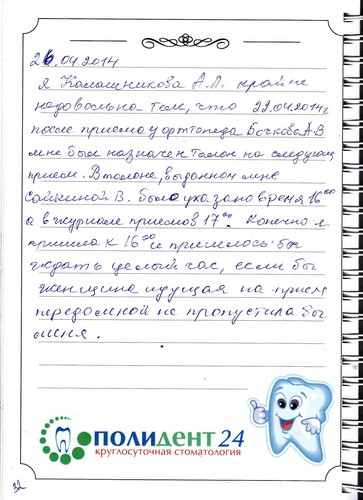 26.04.2014
я Калашникова А.Л. крайне
недовольна тем, что 22.04.2014г
после приема у ортопеда Бочкова А В
мне был назначен Талон на следующ
прием. В талоне, выданном мне
В. было указано время 16⁰⁰
а в журнале приемов 17⁰⁰. Конечно я
пришла к 16⁰⁰ и пришлось бы
ждать целый час, если бы
женщина идущая на прием
передомной не пропустила бы
меня.
ПОЛИДЕНТ 24
круглосуточная стоматология
32